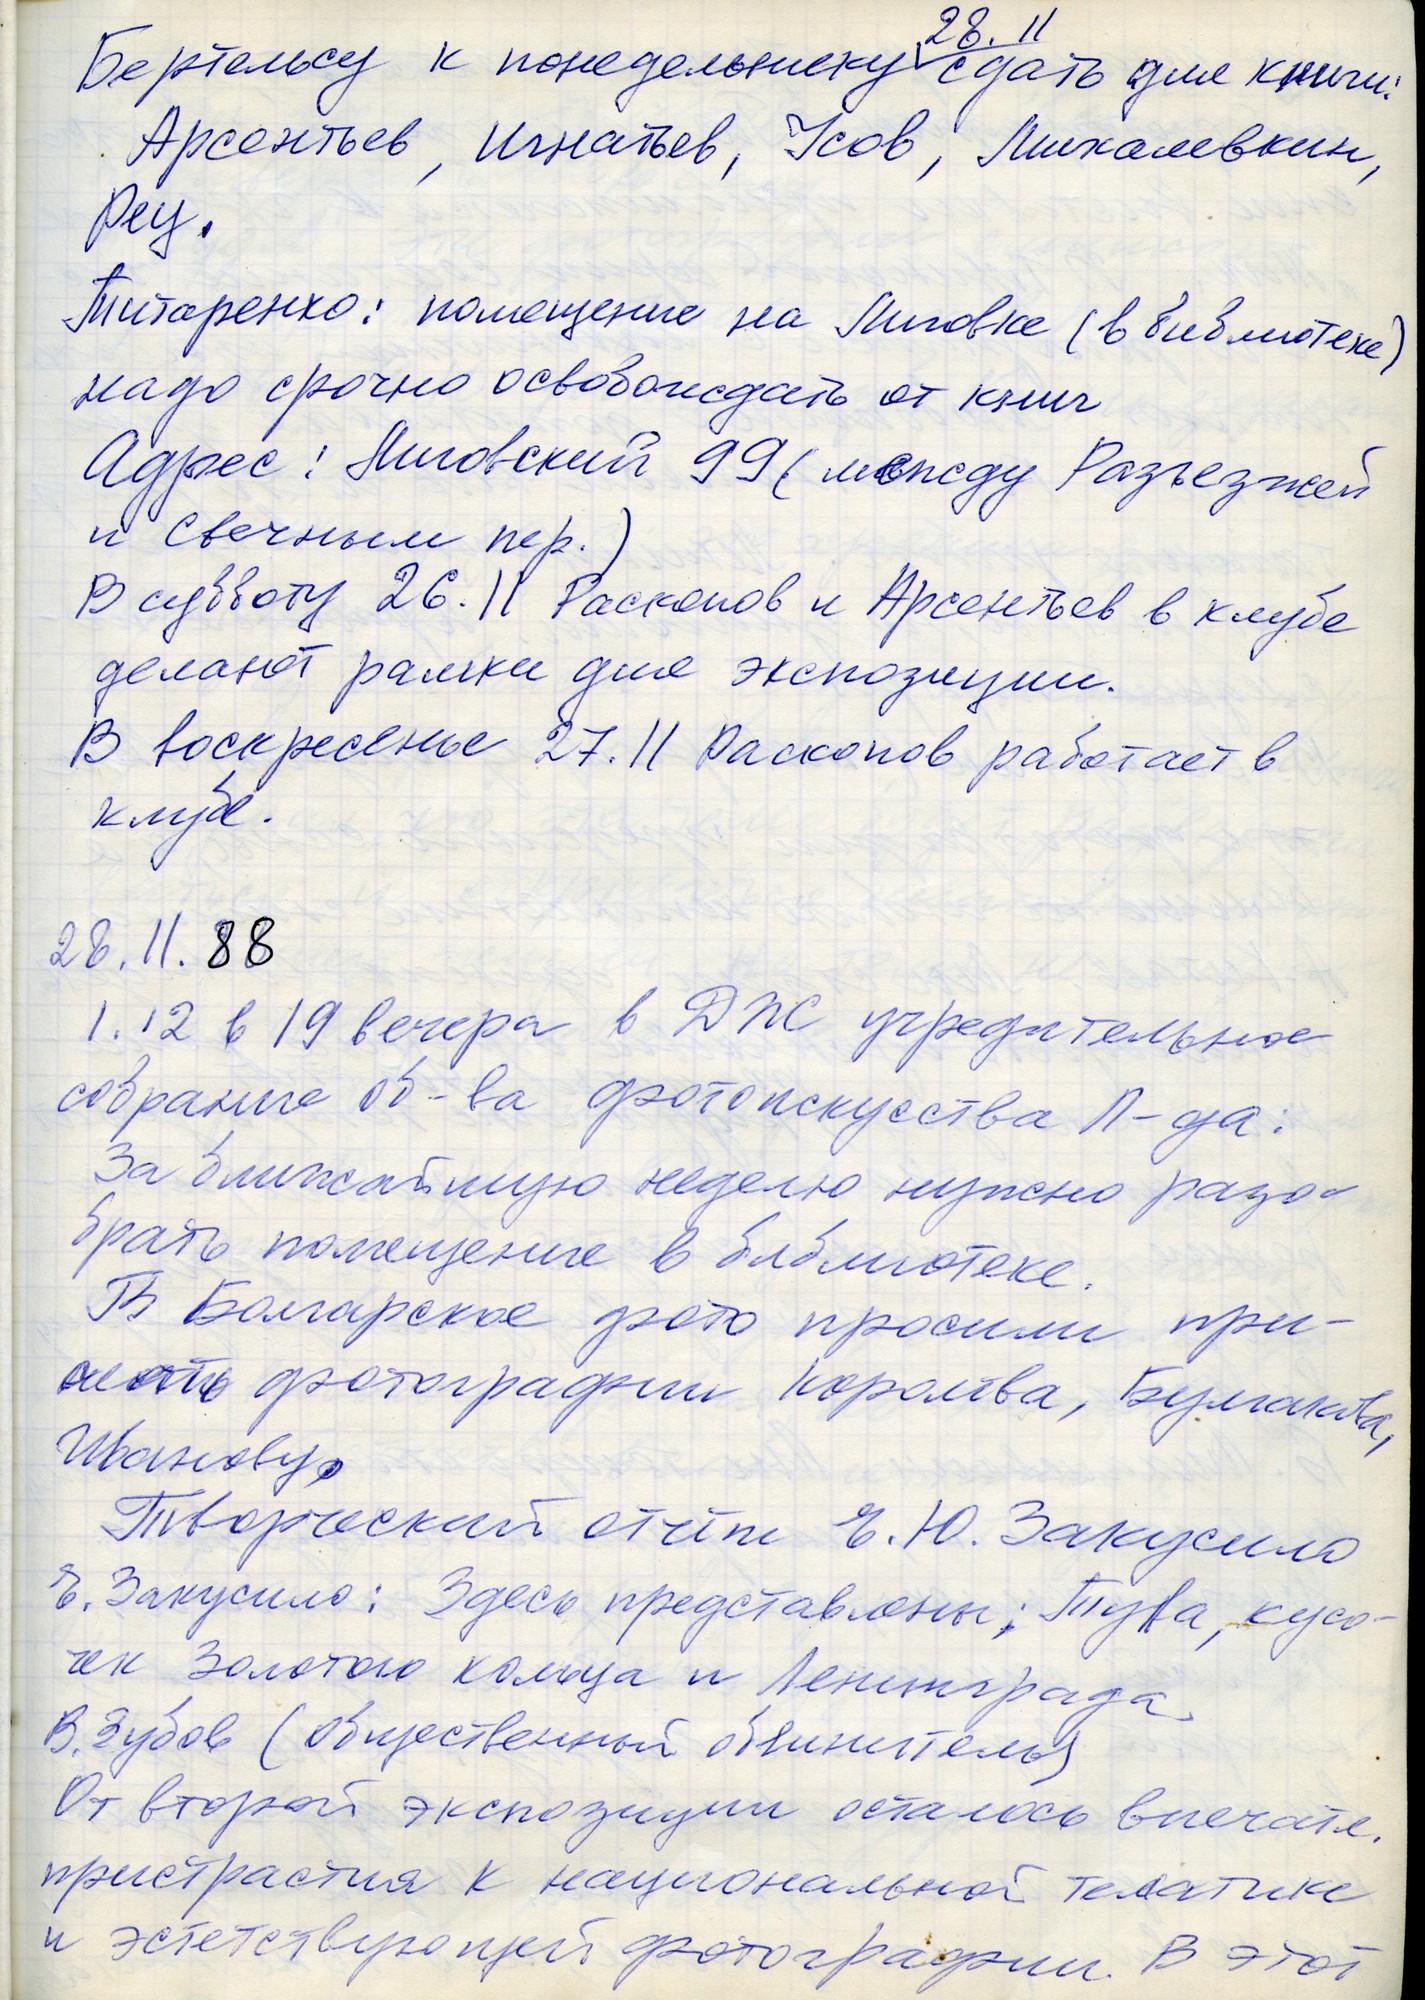 28.11
Бертельсу к понедельнику сдать для книги:
Арсентьев, Игнатьев, Усов, Михалевкин,
Рец.
Титаренко: помещение на Лиговке (в библиотеке)
надо срочно освобождать от книг
Адрес: Лиговский 99 (между Разъезжей
и Свечным пер.)
В субботу 26.11 Раскопов и Арсентьев в клубе
делают рамки для экспозиции.
В воскресенье 27.11 Раскопов работает в
клубе.
28.11.88
1.12 в 19 вечера в ДЖС учредительное
собрание об-ва фотоискусства Л-да:
За ближайшую неделю нужно разо-
брать помещение в библиотеке.
В Болгарское фото просили при-
слать фотографии Королёва, Булгакова,
Иванову.
Творческий отчёт Е.Ю. Закусило
Е. Закусило: Здесь представлены: Тува, кусо-
чек Золотого кольца и Ленинграда.
В. Зубов (общественный обвинитель)
От второй экспозиции осталось впечатл.
пристрастия к национальной тематике
и эстетствующей фотографии. В этот